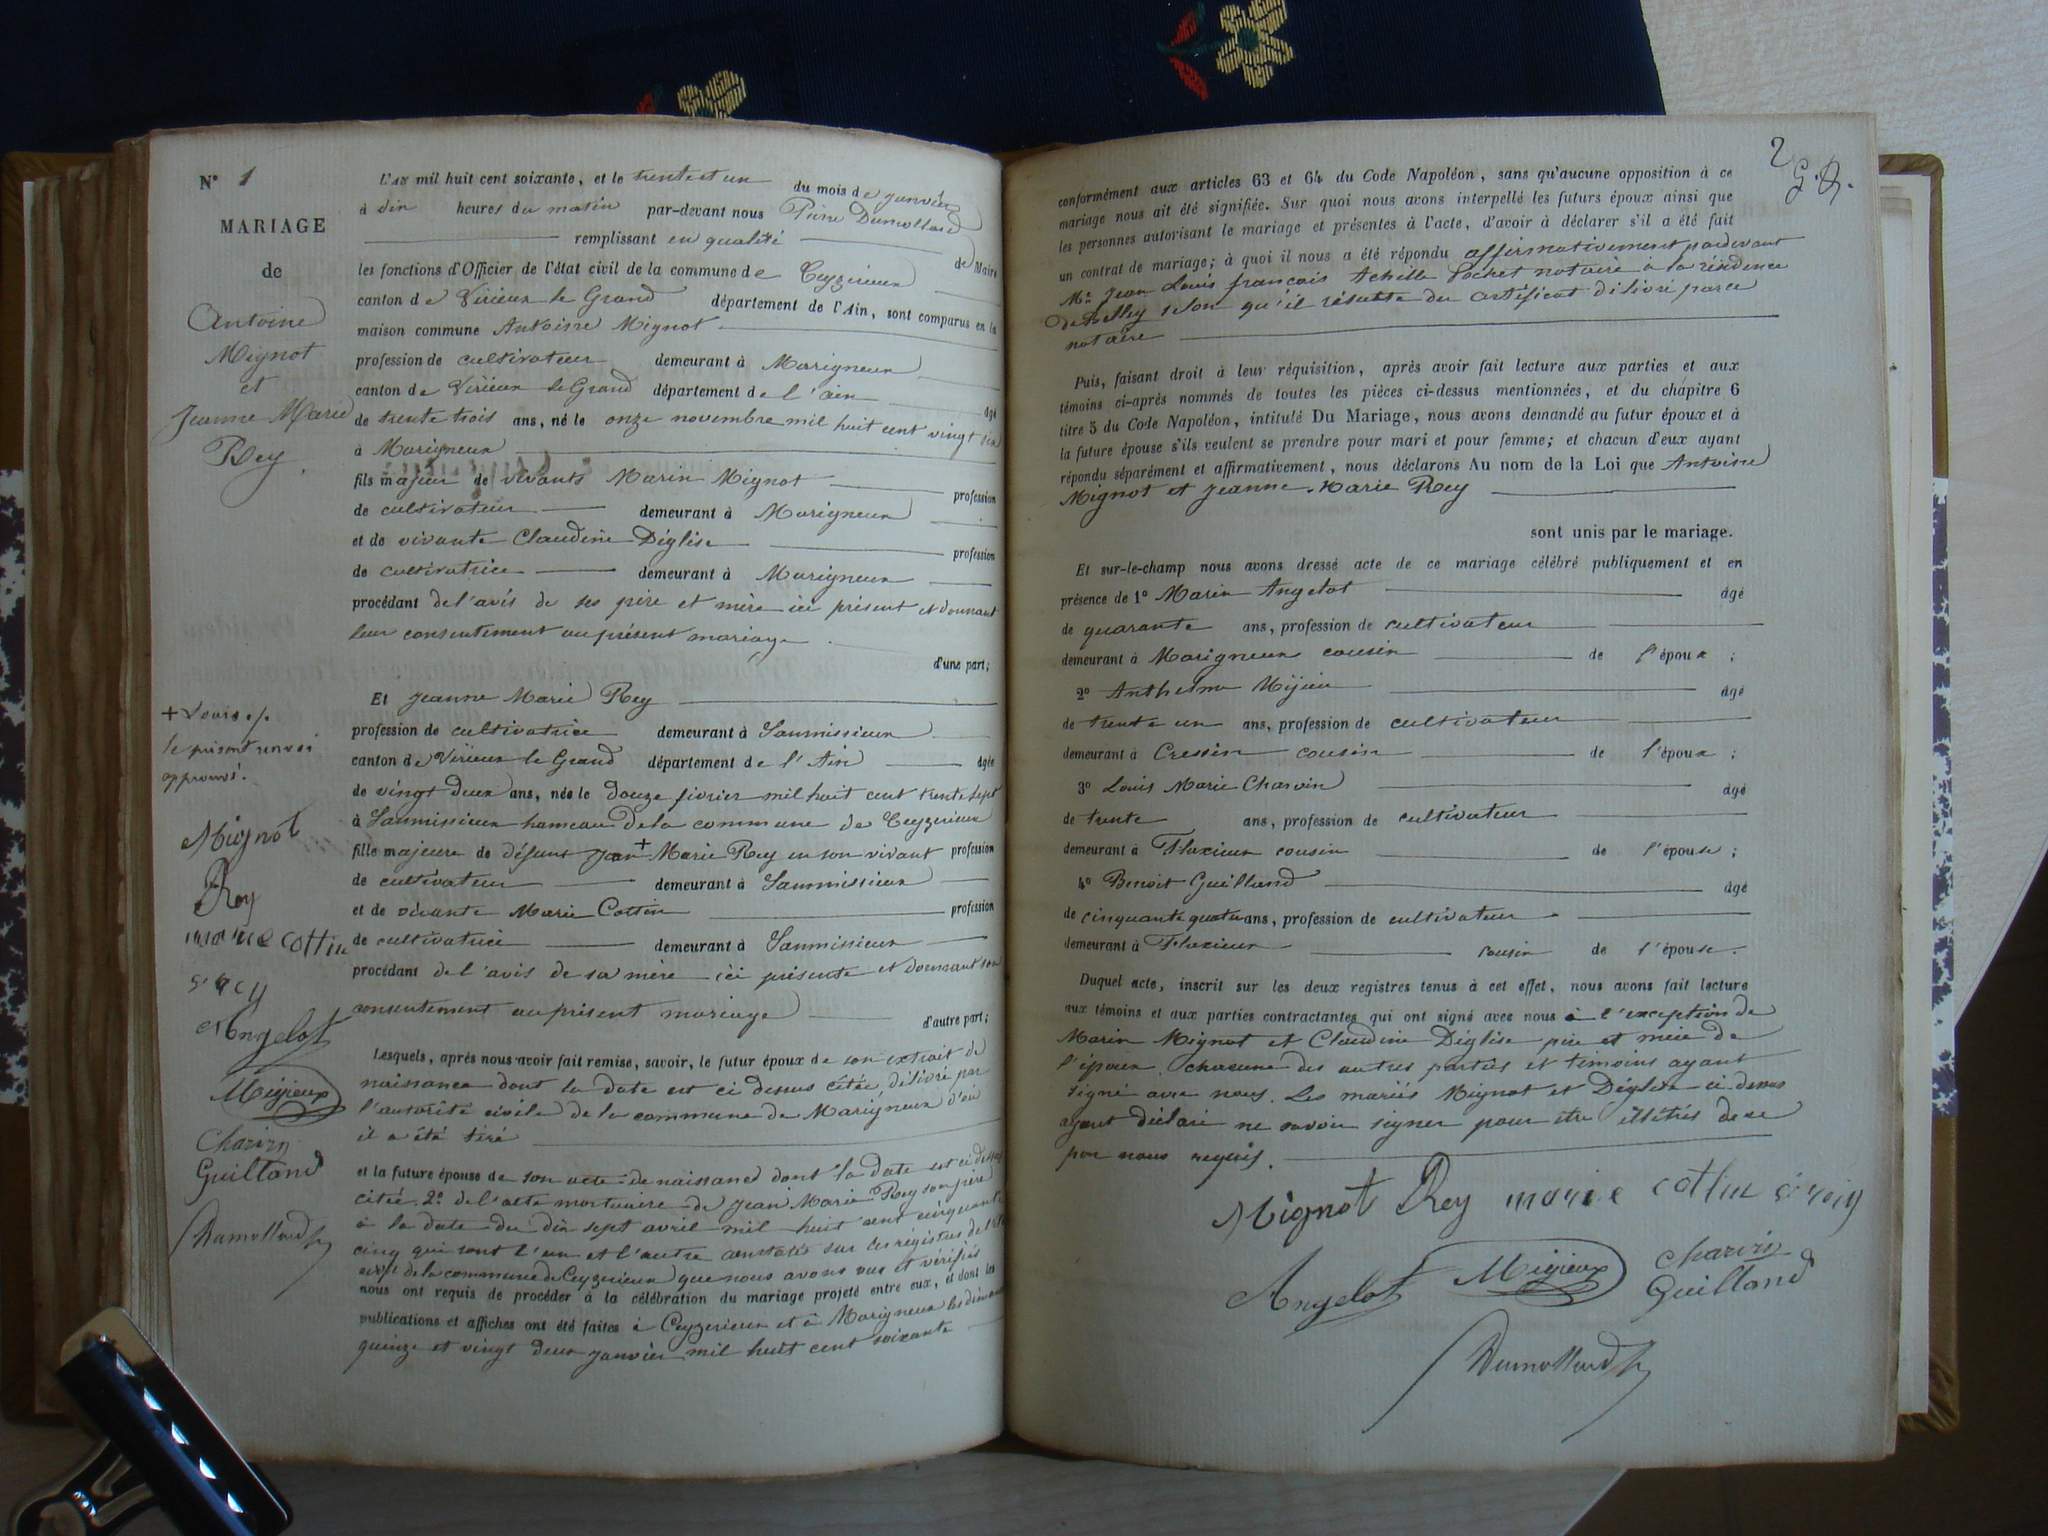 N° 1
MARIAGE
de
Antoine
Mignot
et
Jeanne Marie
Rey
L'AN mil huit cent soixante, et le trente et un du mois de janvier
à dix heures du matin par-devant nous Pierre Dumollard
remplissant en qualité de Maire
les fonctions d'Officier de l'état civil de la commune de Ceyzerieux
canton de Virieux le Grand département de l'Ain, sont comparus en la
maison commune Antoine Mignot
profession de cultivateur demeurant à Marigneux
canton de Virieux le Grand département de l'ain âgé
de trente trois ans, né le onze novembre mil huit cent vingt six
à Marigneux
fils majeur de vivants Marin Mignot profession
de cultivateur demeurant à Marigneux
et de vivante Claudine Déglise profession
de cultivatrice demeurant à Marigneux
procédant de l'avis de ses père et mère ici présent et donnant
leur consentement au présent mariage
d'une part;
Et Jeanne Marie Rey
profession de cultivatrice demeurant à Saumissieux
canton de Virieux le Grand département de l'Ain âgée
de vingt deux ans, née le douze février mil huit cent trente sept
à Saumissieux hameau de la commune de Ceyzerieux
fille majeure de défunt Jean + Marie Rey en son vivant profession
de cultivateur demeurant à Saumissieux
et de vivante Marie Cottin profession
de cultivatrice demeurant à Saumissieux
procédant de l'avis de sa mère ici présente et donnant son
consentement au présent mariage d'autre part;
+ Louis
le présent renvoi
approuvé.
Mignot
Rey
marie cottin
Angelot
Migieux
Charvin
Guilland
Dumollard
Lesquels, après nous avoir fait remise, savoir, le futur époux de son extrait de
naissance dont la date est ci dessus citée, délivré par
l'autorité civile de la commune de Marigneux d'où
il a été tiré
et la future épouse de son acte de naissance dont la date est ci dessus
citée. 2° de l'acte mortuaire de Jean Marie Rey son père
à la date du dix sept avril mil huit cent cinquante
cinq qui sont l'un et l'autre constatés sur les registres de l'état
civil de la commune de Ceyzerieux que nous avons vus et vérifiés
nous ont requis de procéder à la célébration du mariage projeté entre eux, et dont les
publications et affiches ont été faites à Ceyzerieux et à Marigneux les dimanches
quinze et vingt deux janvier mil huit cent soixante
2
conformément aux articles 63 et 64 du Code Napoléon, sans qu'aucune opposition à ce
mariage nous ait été signifiée. Sur quoi nous avons interpellé les futurs époux ainsi que
les personnes autorisant le mariage et présentes à l'acte, d'avoir à déclarer s'il a été fait
un contrat de mariage; à quoi il nous a été répondu affirmativement pardevant
Me Jean Louis françois Achille Pochet notaire à la résidence
de Belley selon qu'il résulte du certificat délivré par ce
notaire
Puis, faisant droit à leur réquisition, après avoir fait lecture aux parties et aux
témoins ci-après nommés de toutes les pièces ci-dessus mentionnées, et du chapitre 6
titre 5 du Code Napoléon, intitulé Du Mariage, nous avons demandé au futur époux et à
la future épouse s'ils veulent se prendre pour mari et pour femme; et chacun d'eux ayant
répondu séparément et affirmativement, nous déclarons Au nom de la Loi que Antoine
Mignot et Jeanne Marie Rey
sont unis par le mariage.
Et sur-le-champ nous avons dressé acte de ce mariage célébré publiquement et en
présence de 1° Marin Angelot âgé
de quarante ans, profession de cultivateur
demeurant à Marigneux cousin de l'époux ;
2° Anthelme Mijieu âgé
de trente un ans, profession de cultivateur
demeurant à Cressin cousin de l'époux ;
3° Louis Marie Charvin âgé
de trente ans, profession de cultivateur
demeurant à Flaxieux cousin de l'épouse ;
4° Benoit Guilland âgé
de cinquante quatre ans, profession de cultivateur
demeurant à Flaxieux cousin de l'épouse.
Duquel acte, inscrit sur les deux registres tenus à cet effet, nous avons fait lecture
aux témoins et aux parties contractantes qui ont signé avec nous à l'exception de
Marin Mignot et Claudine Déglise père et mère de
l'époux, chacune des autres parties et témoins ayant
signé avec nous. Les mariés Mignot et Déglise ci dessus
ayant déclaré ne savoir signer pour être illétrés de ce
par nous requis.
Mignot Rey marie cottin
Angelot Migieux Charvin
Guilland
Dumollard